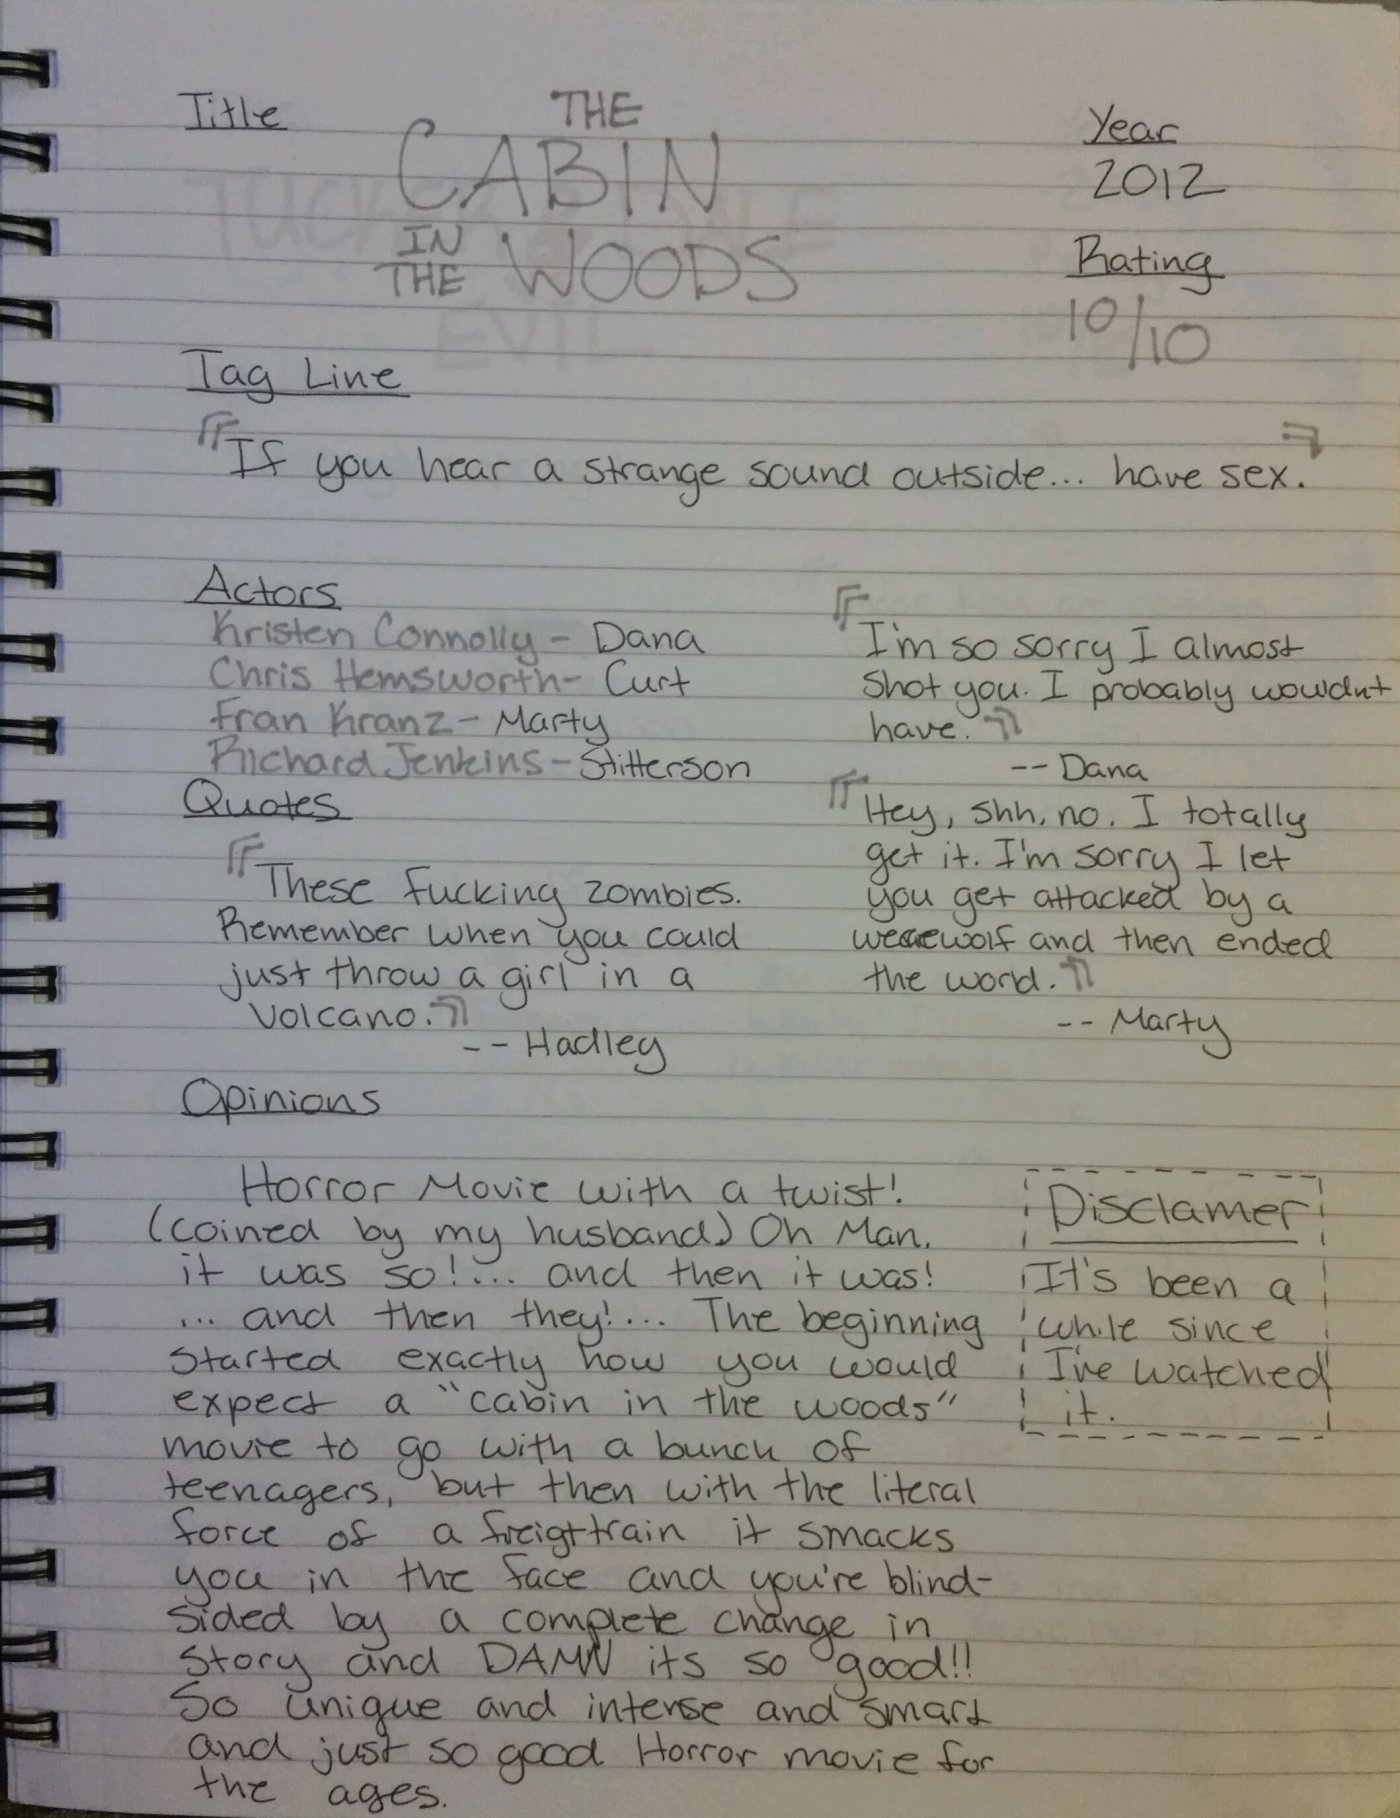 Title
THE
CABIN
IN
THE WOODS
Year
2012
Rating
10/10
Tag Line
"If you hear a strange sound outside... have sex."
Actors
Kristen Connolly - Dana
Chris Hemsworth - Curt
Fran Kranz - Marty
Richard Jenkins - Stitterson
Quotes
"These fucking zombies.
Remember when you could
just throw a girl in a
volcano."
-- Hadley
"I'm so sorry I almost
shot you. I probably wouldn't
have."
-- Dana
"Hey, shh, no. I totally
get it. I'm sorry I let
you get attacked by a
werewolf and then ended
the world."
-- Marty
Opinions
Horror Movie with a twist!
(coined by my husband) Oh Man.
it was so!... and then it was!
... and then they!... The beginning
started exactly how you would
expect a "cabin in the woods"
movie to go with a bunch of
teenagers, but then with the literal
force of a freigttrain it smacks
you in the face and you're blind-
sided by a complete change in
story and DAMN its so good!!
So unique and intense and smart
and just so good Horror movie for
the ages.
Disclamer
It's been a
while since
I've watched
it.
TUCK
EVIL